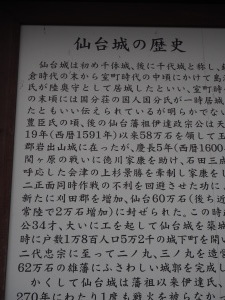 仙台城の歴史
仙台城は初め千体城、後に千代城と称し、
倉時代の末から室町時代の中頃にかけて島
氏が陸奥守として居城したといい、室町時
の末頃には国分荘の国人国分氏が一時居城
たともいい伝えられているが明らかでない
豊臣氏の頃、後の仙台藩祖伊達政宗公は天
19年(西暦1591年)以来58万石を領して玉
郡岩出山城に在ったが、慶長5年(西暦1600
関ヶ原の戦いに徳川家康を助け、石田三成
呼応した会津の上杉景勝を牽制し家康をし
二正面同時作戦の不利を回避させた功に
新たに刈田郡を増加、仙台60万石(後ち近
常陸で2万石増加)に封ぜられた。この時政
公34才、大いに工を起して仙台城を築城
時に戸数1万8百人口5万2千の城下町を開い
二代忠宗に至って二ノ丸、三ノ丸を造営
62万石の雄藩にふさわしい城郭を完成し
かくして仙台城は藩祖以来伊達氏、
270年にわたり1度も戦火を